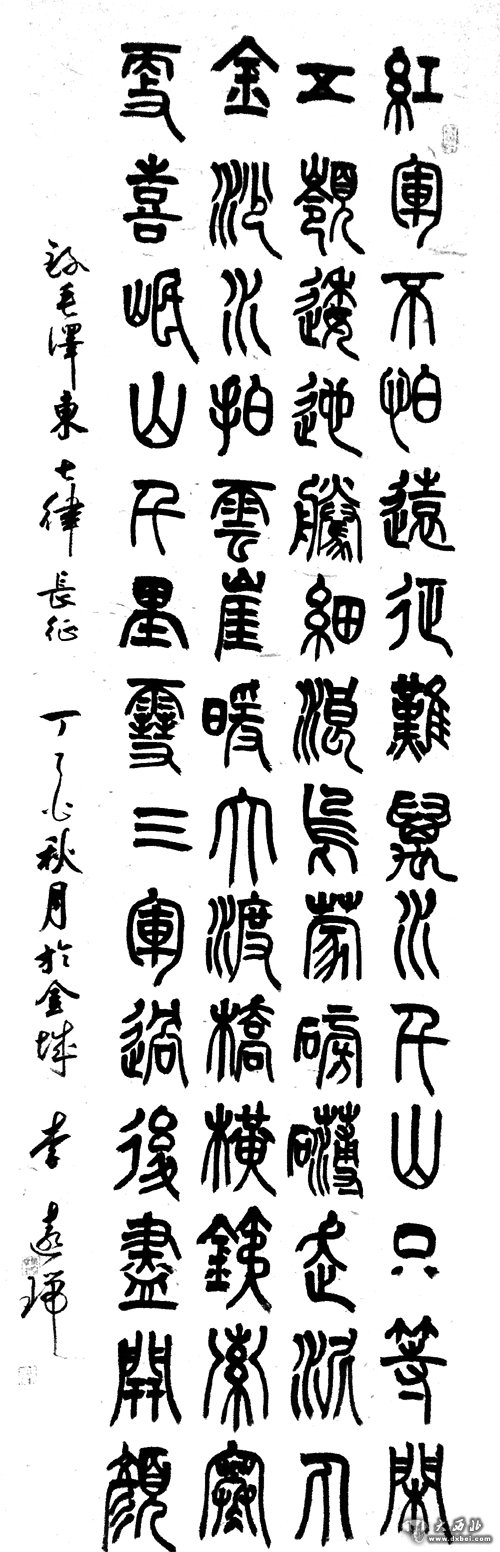 紅軍不怕遠征難萬水千山只等閑
五嶺逶迤騰細浪烏蒙磅礴走泥丸
金沙水拍雲崖暖大渡橋橫鐵索寒
更喜岷山千里雪三軍過後盡開顏
錄毛澤東七律長征 丁 秋月於金城 李遠
大西北
www.dxbei.com